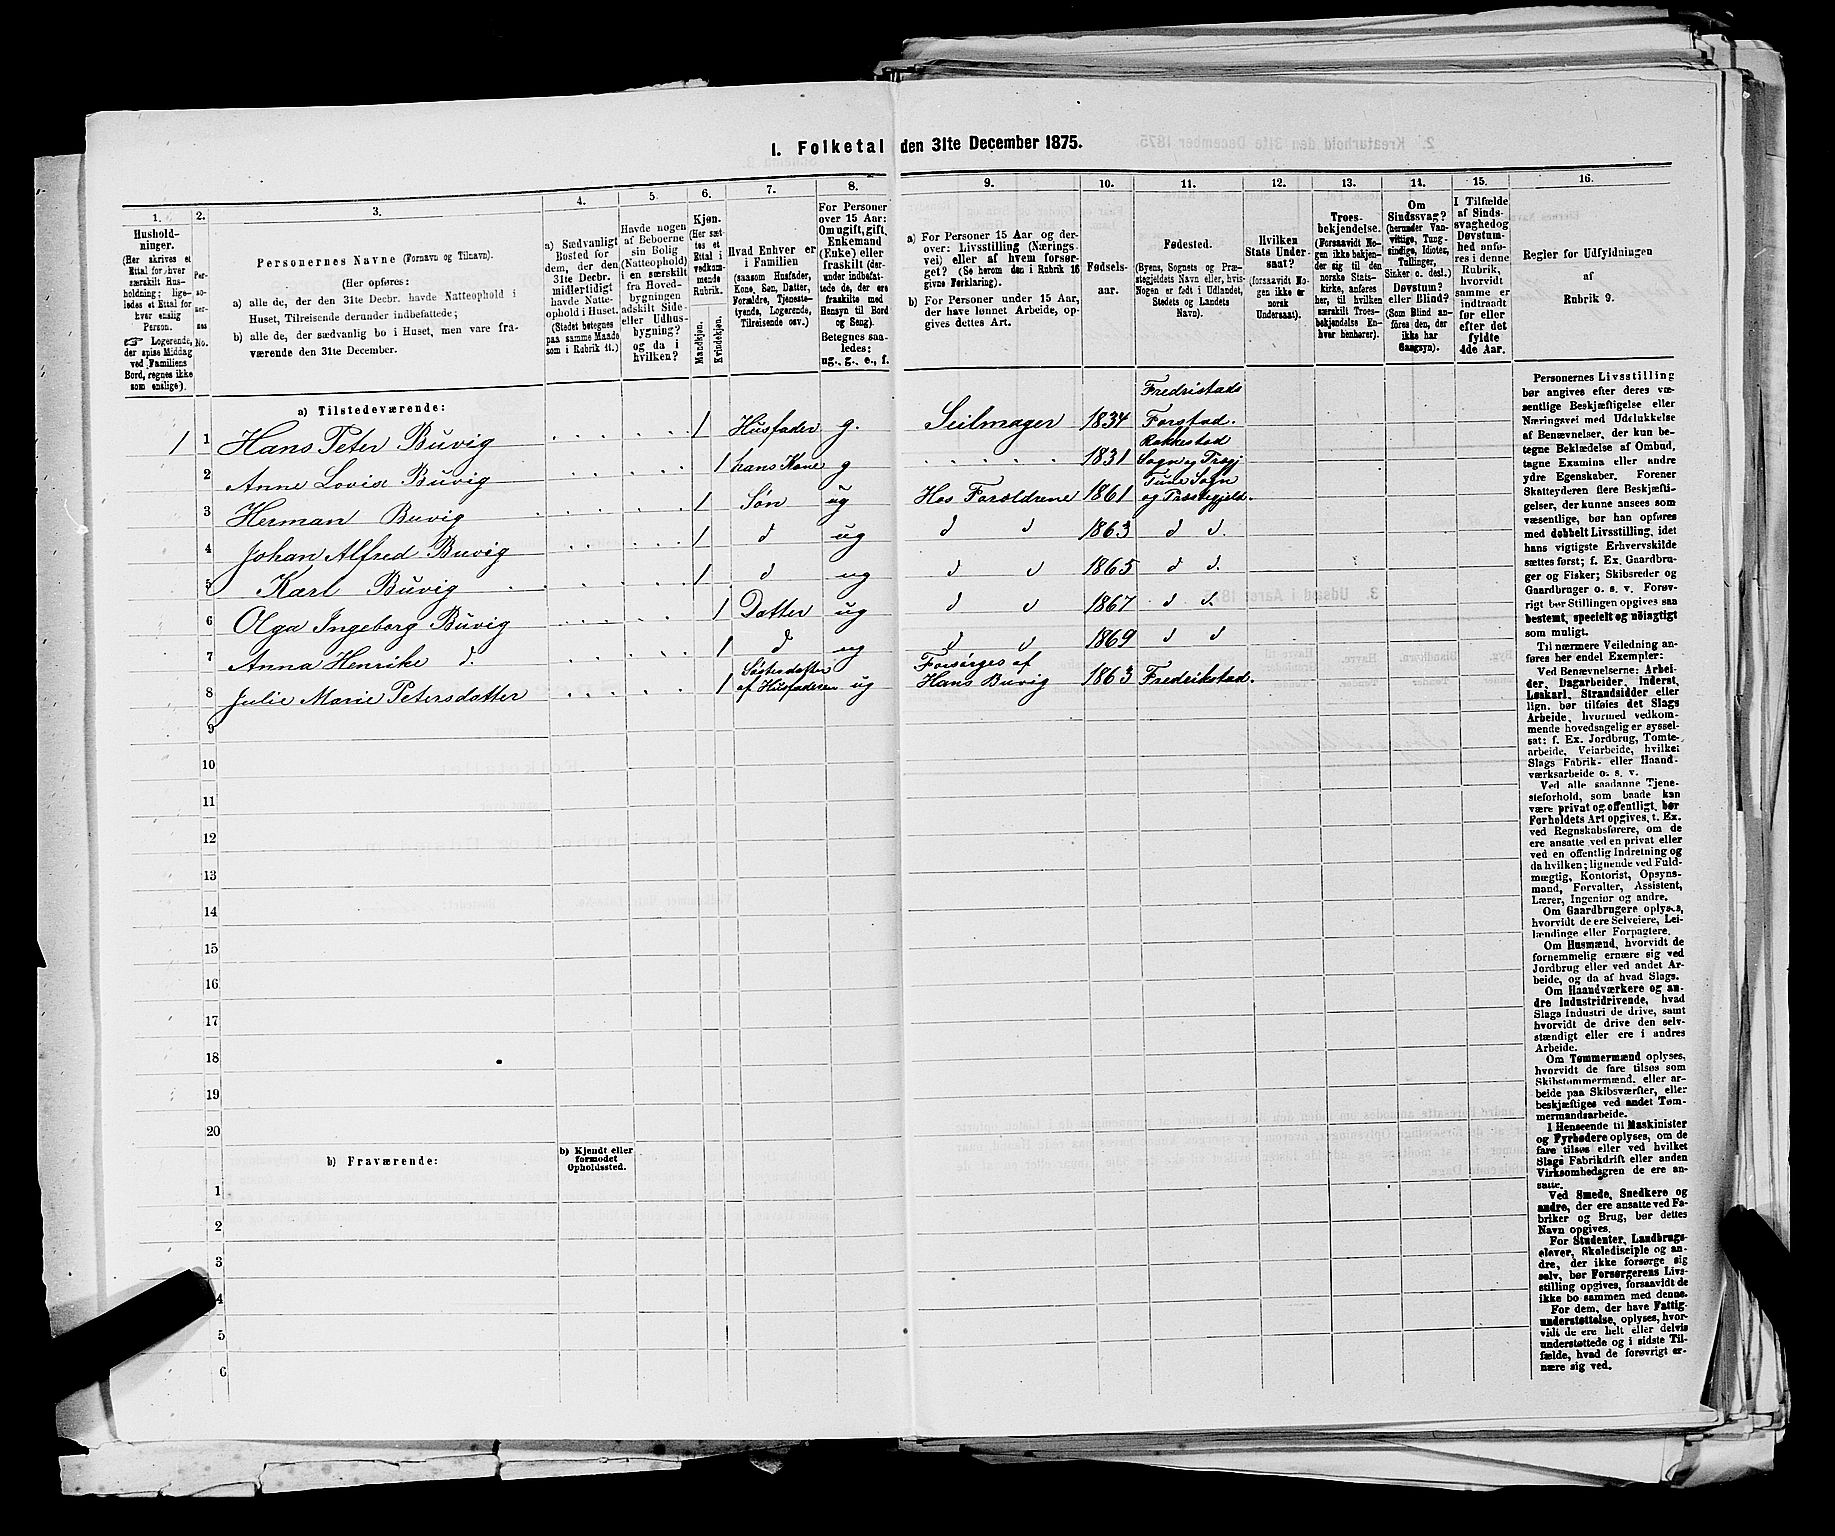 1. Folketal den 31te December 1875.
1. 2. 3. 4. 5. 6. 7. 8. 9. 10. 11. 12. 13. 14. 15. 16.
Hushold-
ninger.
(Her skrives et
Ettal for hver
særskilt Hus-
holdning; lige-
ledes et Ettal for
hver enslig
Person.
☞ Logerende,
der spise Middag
ved Familiens
Bord, regnes ikke
som enslige).
Per-
so-
ner-
nes
No.
Personernes Navne (Fornavn og Tilnavn).
(Her opføres:
a) alle de, der den 31te Decbr. havde Natteophold i
Huset, Tilreisende derunder indbefattede;
b) alle de, der sædvanlig bo i Huset, men vare fra-
værende den 31te December.
a) Sædvanligt
Bosted for
dem, der den
31te Decbr.
midlertidigt
havde Natte-
ophold i Huset.
(Stedet betegnes
paa samme Maade
som i Rubrik 11.)
Havde nogen
af Beboerne
sin Bolig
(Natteophold)
i en særskilt
fra Hoved-
bygningen
adskilt Side-
eller Udhus-
bygning?
og da i
hvilken?
Kjøn.
(Her sæt-
tes et
Ettal i
vedkom-
mende
Rubrik.
Mandkjøn.
Kvindekjøn.
Hvad Enhver er
i Familien
(saasom Husfader,
Kone, Søn, Datter,
Forældre, Tjeneste-
tyende, Logerende,
Tilreisende osv.)
For Personer
over 15 Aar:
Om ugift, gift,
Enkemand
(Enke) eller
fraskilt (der-
under indbefat-
tede de, der ere
fraskilte med
Hensyn til Bord
og Seng).
Betegnes saa-
ledes:
ug., g., e., f.
a) For Personer 15 Aar og der-
over: Livsstilling (Nærings-
vei) eller af hvem forsør-
get? (Se herom den i Rubrik 16
givne Forklaring).
b) For Personer under 15 Aar,
der have lønnet Arbeide, op-
gives dettes Art.
Fødsels-
aar.
Fødested.
(Byens, Sognets og Præ-
stegjeldets Navn eller, hvis
Nogen er født i Udlandet,
Stedets og Landets
Navn).
Hvilken
Stats Under-
saat?
(forsaavidt No-
gen ikke er
norsk
Undersaat).
Troes-
bekjendelse.
(Forsaavidt No-
gen ikke bekjen-
der sig til den
norske Stats-
kirke, anføres
her, til hvilken
særskilt Troes-
bekjendelse En-
hver henhører).
Om
Sindssvag?
(herunder Van-
vittige, Tung-
sindige, Idioter,
Tullinger,
Sinker o. desl.)
Døvstum?
eller Blind?
(Som Blind an-
føres den, der
ikke har
Gangsyn).
I Tilfælde
af Sinds-
svaghed og
Døvstum-
hed anfø-
res i denne
Rubrik,
hvorvidt
samme er
indtraadt
før eller
efter det
fyldte
4de Aar.
Regler for Udfyldningen
af
Rubrik 9.
a) Tilstedeværende:
Fredristads
1 1 Hans Peter Buvig 1 Husfader g. Seilmager 1834 Forstad.
Rakkestad
2 Anne Lovise Buvig 1 hans Kone g 1831 Sogn og Præstgj
Tune Sogn
3 Herman Buvig 1 Søn ug Hos Forældrene 1861 og Præstegjeld.
4 Johan Alfred Buvig 1 d ug d d 1863 d d.
5 Karl Buvig 1 d ug d d 1865 d d.
6 Olga Ingeborg Buvig 1 Datter ug d d 1867 d d.
7 Anna Henrike d. 1 d ug d d 1869 d d
Søsterdatter Forsørges af
8 Julie Marie Petersdatter 1 af Husfaderen ug Hans Buvig 1863 Fredrikstad.
9
10
11
12
13
14
15
16
17
18
19
20
b) Fraværende:
b) Kjendt eller
formodet
Opholdssted.
1
2
3
4
5
6
Personernes Livsstilling
bør angives efter deres væ-
sentlige Beskjæftigelse eller
Næringsvei med Udelukkelse
af Benævnelser, der kun be-
tegne Beklædelse af Ombud,
tagne Examina eller andre
ydre Egenskaber. Forener
Skatteyderen flere Beskjæfti-
gelser, der kunne ansees som
væsentlige, bør han opføres
med dobbelt Livsstilling, idet
hans vigtigste Erhvervskilde
sættes først; f. Ex. Gaardbru-
ger og Fisker; Skibsreder og
Gaardbruger o. s. v. Forøv-
rigt bør Stillingen opgives saa
bestemt, specielt og nøiagtigt
som muligt.
Til nærmere Veiledning an-
føres her endel Exempler:
Ved Benævnelserne: Arbei-
der, Dagarbeider, Inderst,
Løskarl, Strandsidder eller
lign. bør tilføies det Slags
Arbeide, hvormed vedkom-
mende hovedsagelig er syssel-
sat; f. Ex. Jordbrug, Tomte-
arbeide, Veiarbeide, hvilket
Slags Fabrik- eller Haand-
værksarbeide o. s. v.
Ved alle saadanne Tjene-
steforhold, som baade kan
være privat og offentligt, bør
Forholdets Art opgives, t. Ex.
ved Regnskabsførere, om de
ere ansatte ved en privat eller
ved en offentlig Indretning og
da hvilken; lignende ved Fuld-
mægtig, Kontorist, Opsyns-
mand, Forvalter, Assistent,
Lærer, Ingeniør og andre.
Om Gaardbrugere oplyses,
hvorvidt de ere Selveiere, Lei-
lændinge eller Forpagtere.
Om Husmænd, hvorvidt de
fornemmelig ernære sig ved
Jordbrug eller ved andet Ar-
beide, og da af hvad Slags.
Om Haandværkere og an-
dre Industridrivende, hvad
Slags Industri de drive, samt
hvorvidt de drive den selv-
stændigt eller ere i andres
Arbeide.
Om Tømmermænd oplyses,
hvorvidt de fare tilsøs som
Skibstømmermænd, eller ar-
beide paa Skibsværfter, eller
beskjæftiges ved andet Tøm-
mermandsarbeide.
I Henseende til Maskinister
og Fyrbødere oplyses, om de
fare tilsøs eller ved hvilket
Slags Fabrikdrift eller anden
Virksomhedsgren de ere an-
satte.
Ved Smede, Snedkere og
andre, der ere ansatte ved Fa-
briker og Brug, bør dettes
Navn opgives.
For Studenter, Landbrugs-
elever, Skoledisciple og an-
dre, der ikke forsørge sig
selv, bør Forsørgerens Livs-
stilling opgives, forsaavidt de
ikke bo sammen med denne.
For dem, der have Fattig-
understøttelse, oplyses, hvor-
vidt de ere helt eller delvis
understøttede og i sidste Til-
fælde, hvad de forøvrigt er-
nære sig ved.